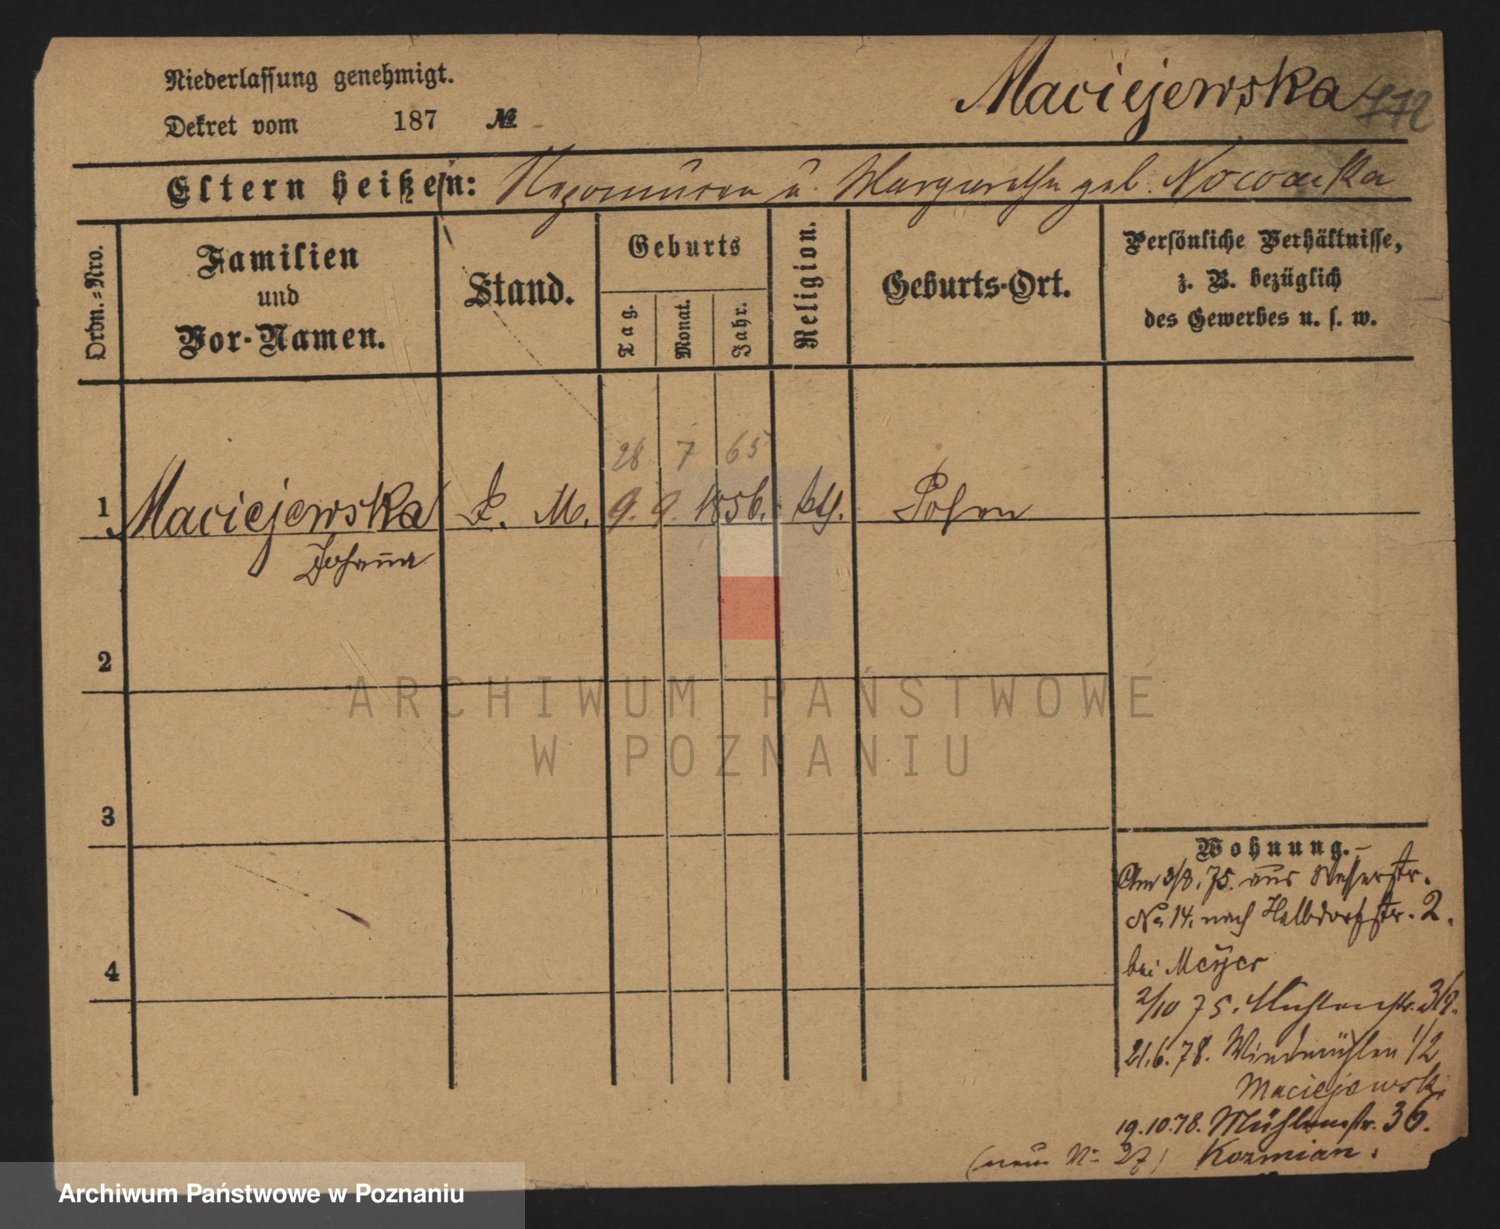 Niederlassung genehmigt.
Maciejewska
Dekret vom 187 №
Eltern heißen: u. Margaretha geb.
Ordn.-Nro.
Familien
und
Vor-Namen.
Stand.
Geburts
Tag.
Monat.
Jahr.
Religion.
Geburts-Ort.
Persönliche Verhältnisse,
z. B. bezüglich
des Gewerbes u. s. w.
28 7 65
1 Maciejewska D. M. 9. 9. 1856. kth. Posen
Johanna
2
3
4
Wohnung.
Am 3/8. 75. aus
No 14. nach Halbdorfstr. 2.
bei Meyer
2/10 75. Mühlenstr.
21.6.78. Windmühlen 1/2
Maciejewski
19.10.78. Mühlenstr. 36.
(neue No 27) Kozmian.
ARCHIWUM PAŃSTWOWE
W POZNANIU
Archiwum Państwowe w Poznaniu